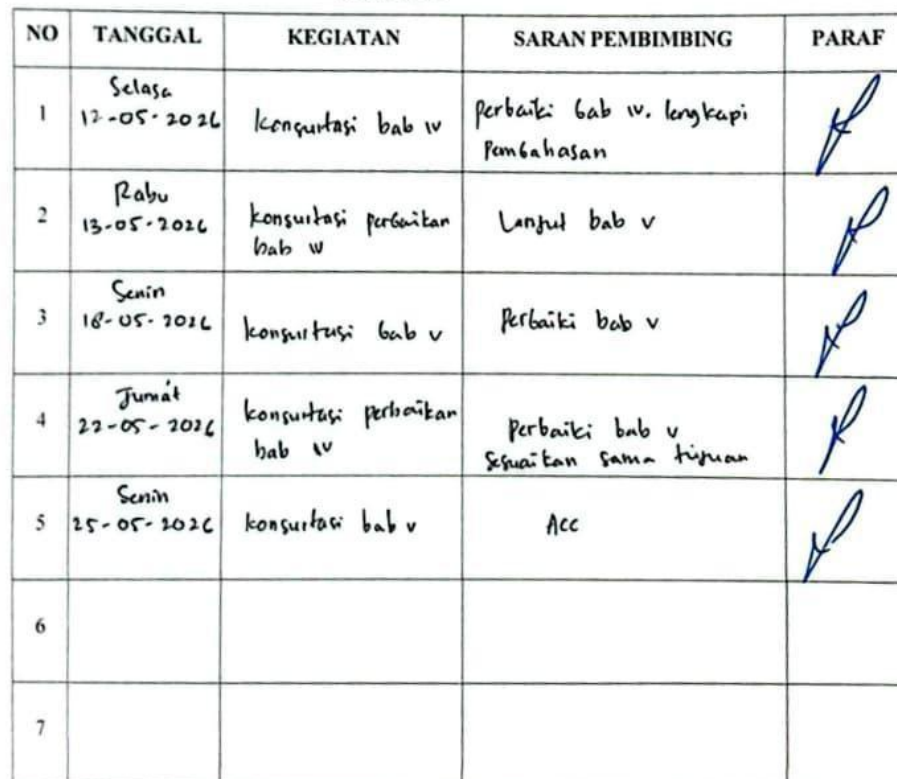 NO TANGGAL KEGIATAN SARAN PEMBIMBING PARAF
1
Selasa
12-05-2026
konsultasi bab IV
perbaiki bab IV. lengkapi
pembahasan
2
Rabu
13-05-2026
konsultasi perbaikan
bab IV
Lanjut bab V
3
Senin
18-05-2026
konsultasi bab V
perbaiki bab V
4
Jumát
22-05-2026
konsultasi perbaikan
bab IV
perbaiki bab V
sesuaikan sama tujuan
5
Senin
25-05-2026
konsultasi bab V
Acc
6
7